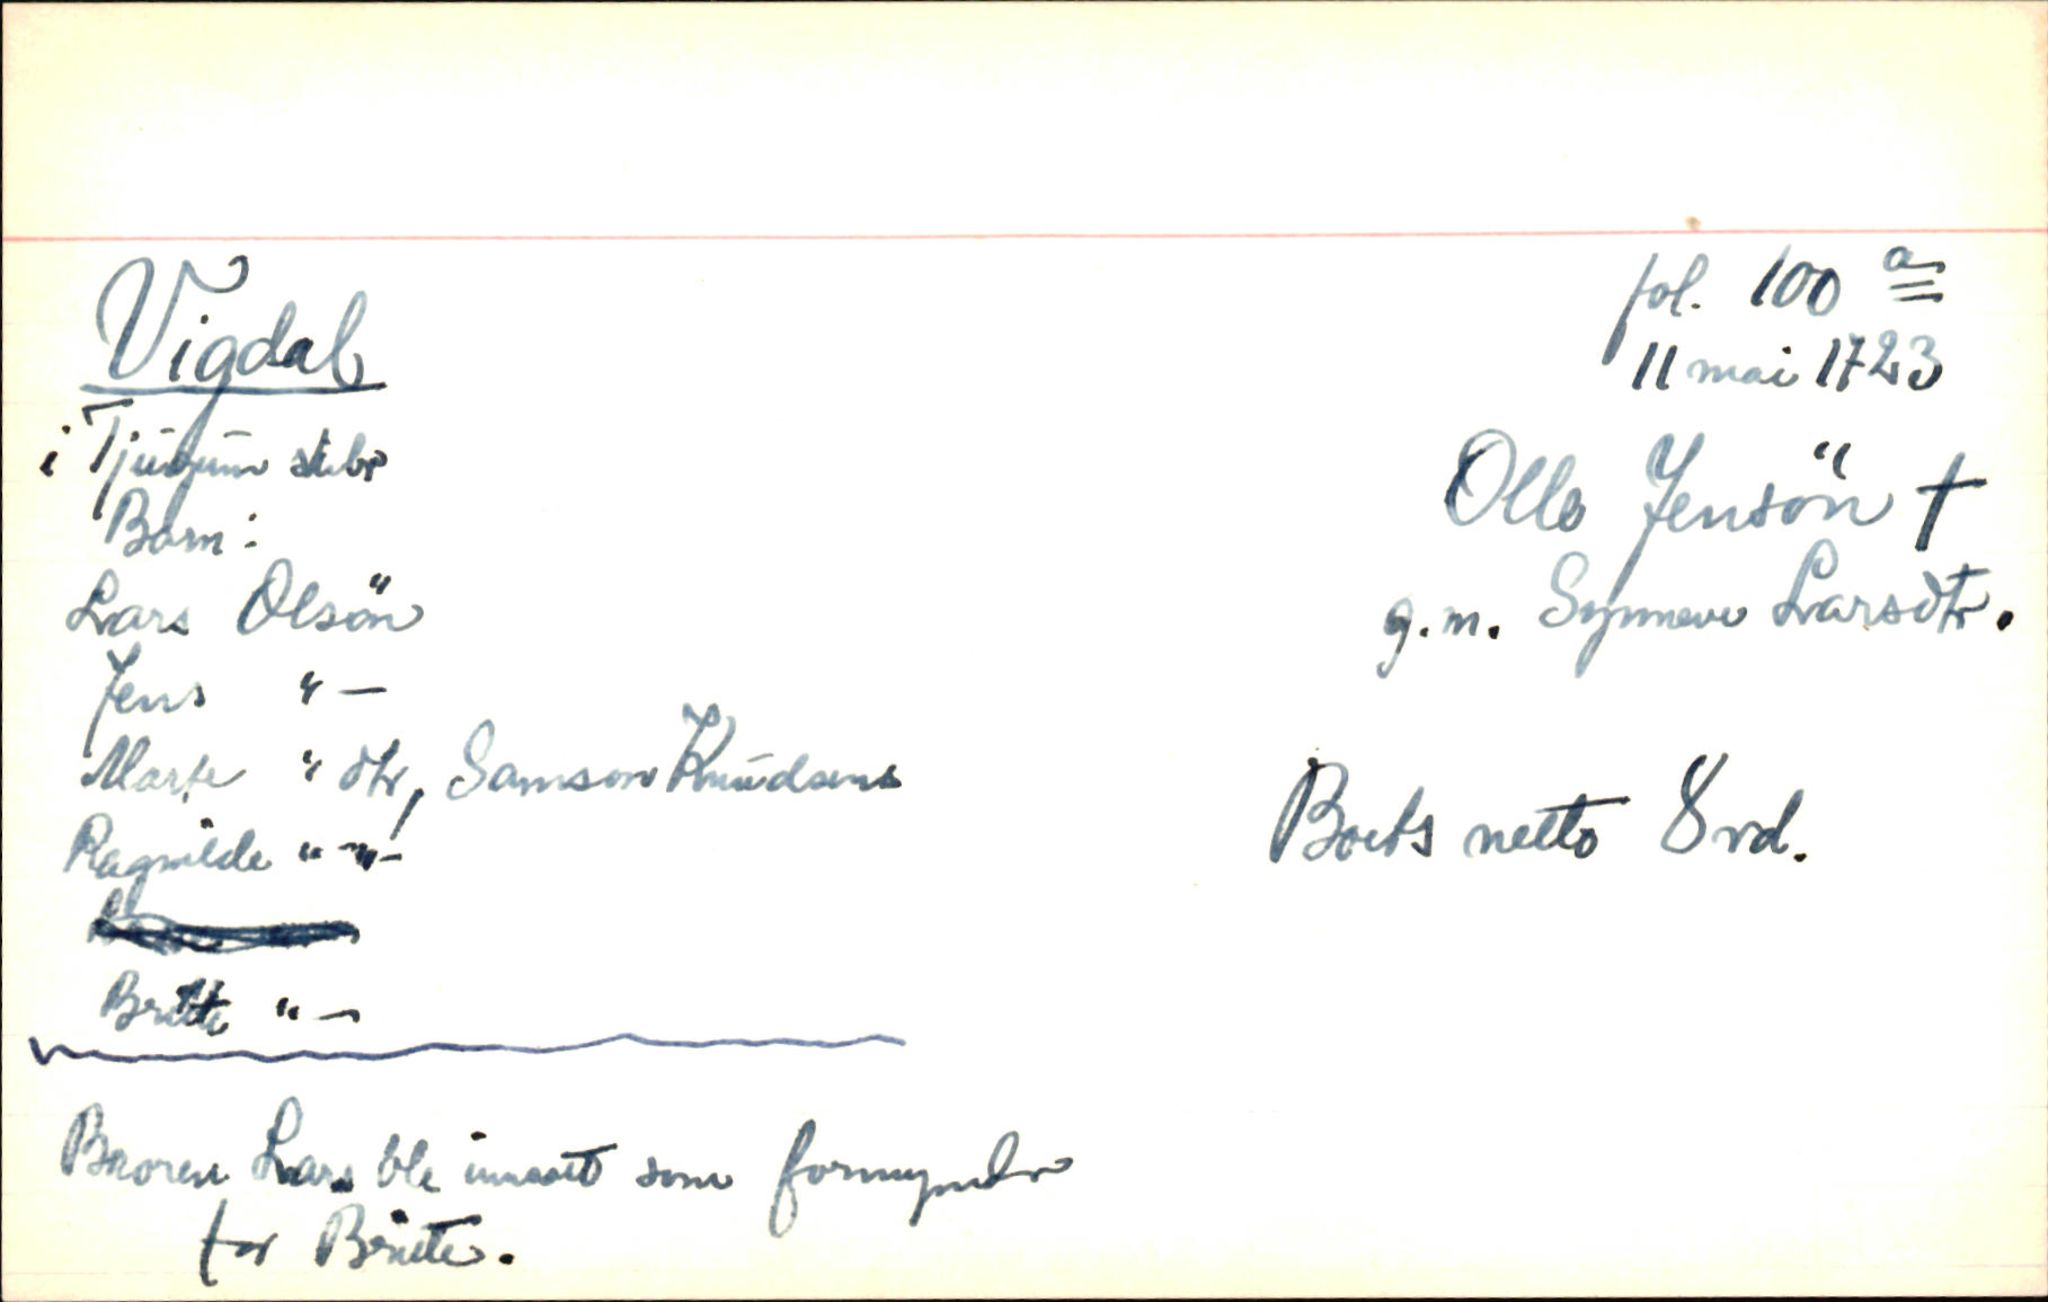 Vigdal
i Tjugum skbr
Barn:
Lars Olsön
Jens " —
Marte " dtr, Samson Knudsens
Ragnilde " — " —
Britte " —
Broren Lars ble innsatt som formynder
for Britte.
fol. 100 a
11 mai 1723
Olle Jensön †
g.m. Synneve Larsdtr.
Boets netto 8 rd.